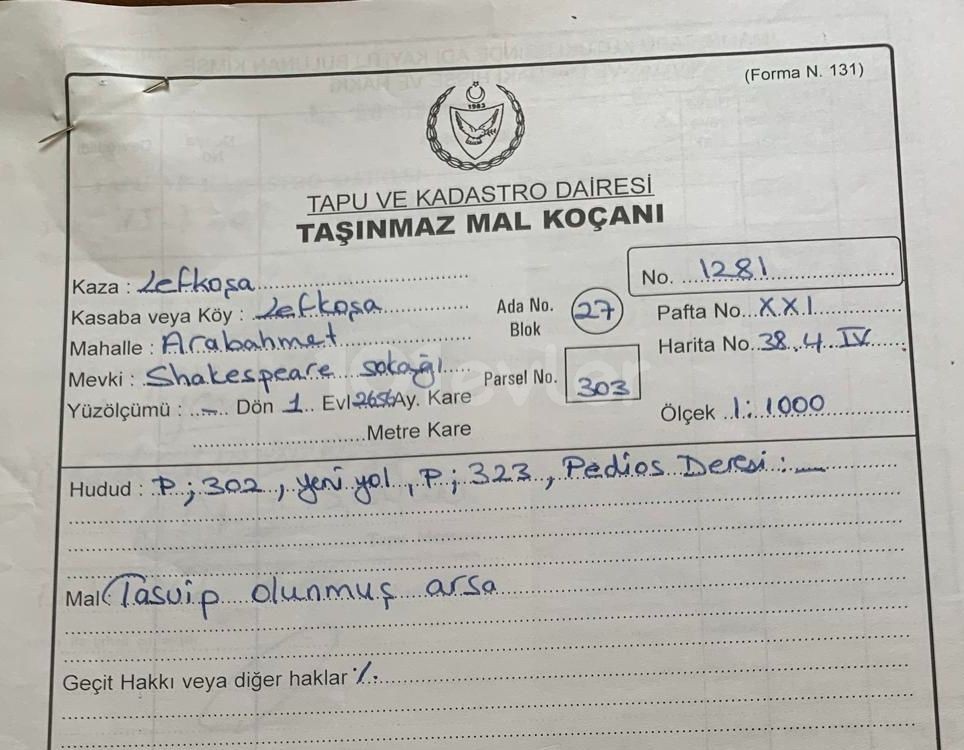 (Forma N. 131)
1983
TAPU VE KADASTRO DAİRESİ
TAŞINMAZ MAL KOÇANI
No. 1281
Kaza : Lefkoşa
Kasaba veya Köy : Lefkoşa
Mahalle : Arabahmet
Mevki : Shakespeare sokağı
Yüzölçümü : – Dön 1 Evl 2656 Ay. Kare
Metre Kare
Ada No. 27
Blok
Parsel No. 303
Pafta No. XXI
Harita No. 38.4 IV
Ölçek 1:1000
Hudud : P; 302, yeni yol, P; 323, Pedios Deresi :—
Mal Tasvip olunmuş arsa
Geçit Hakkı veya diğer haklar ٪